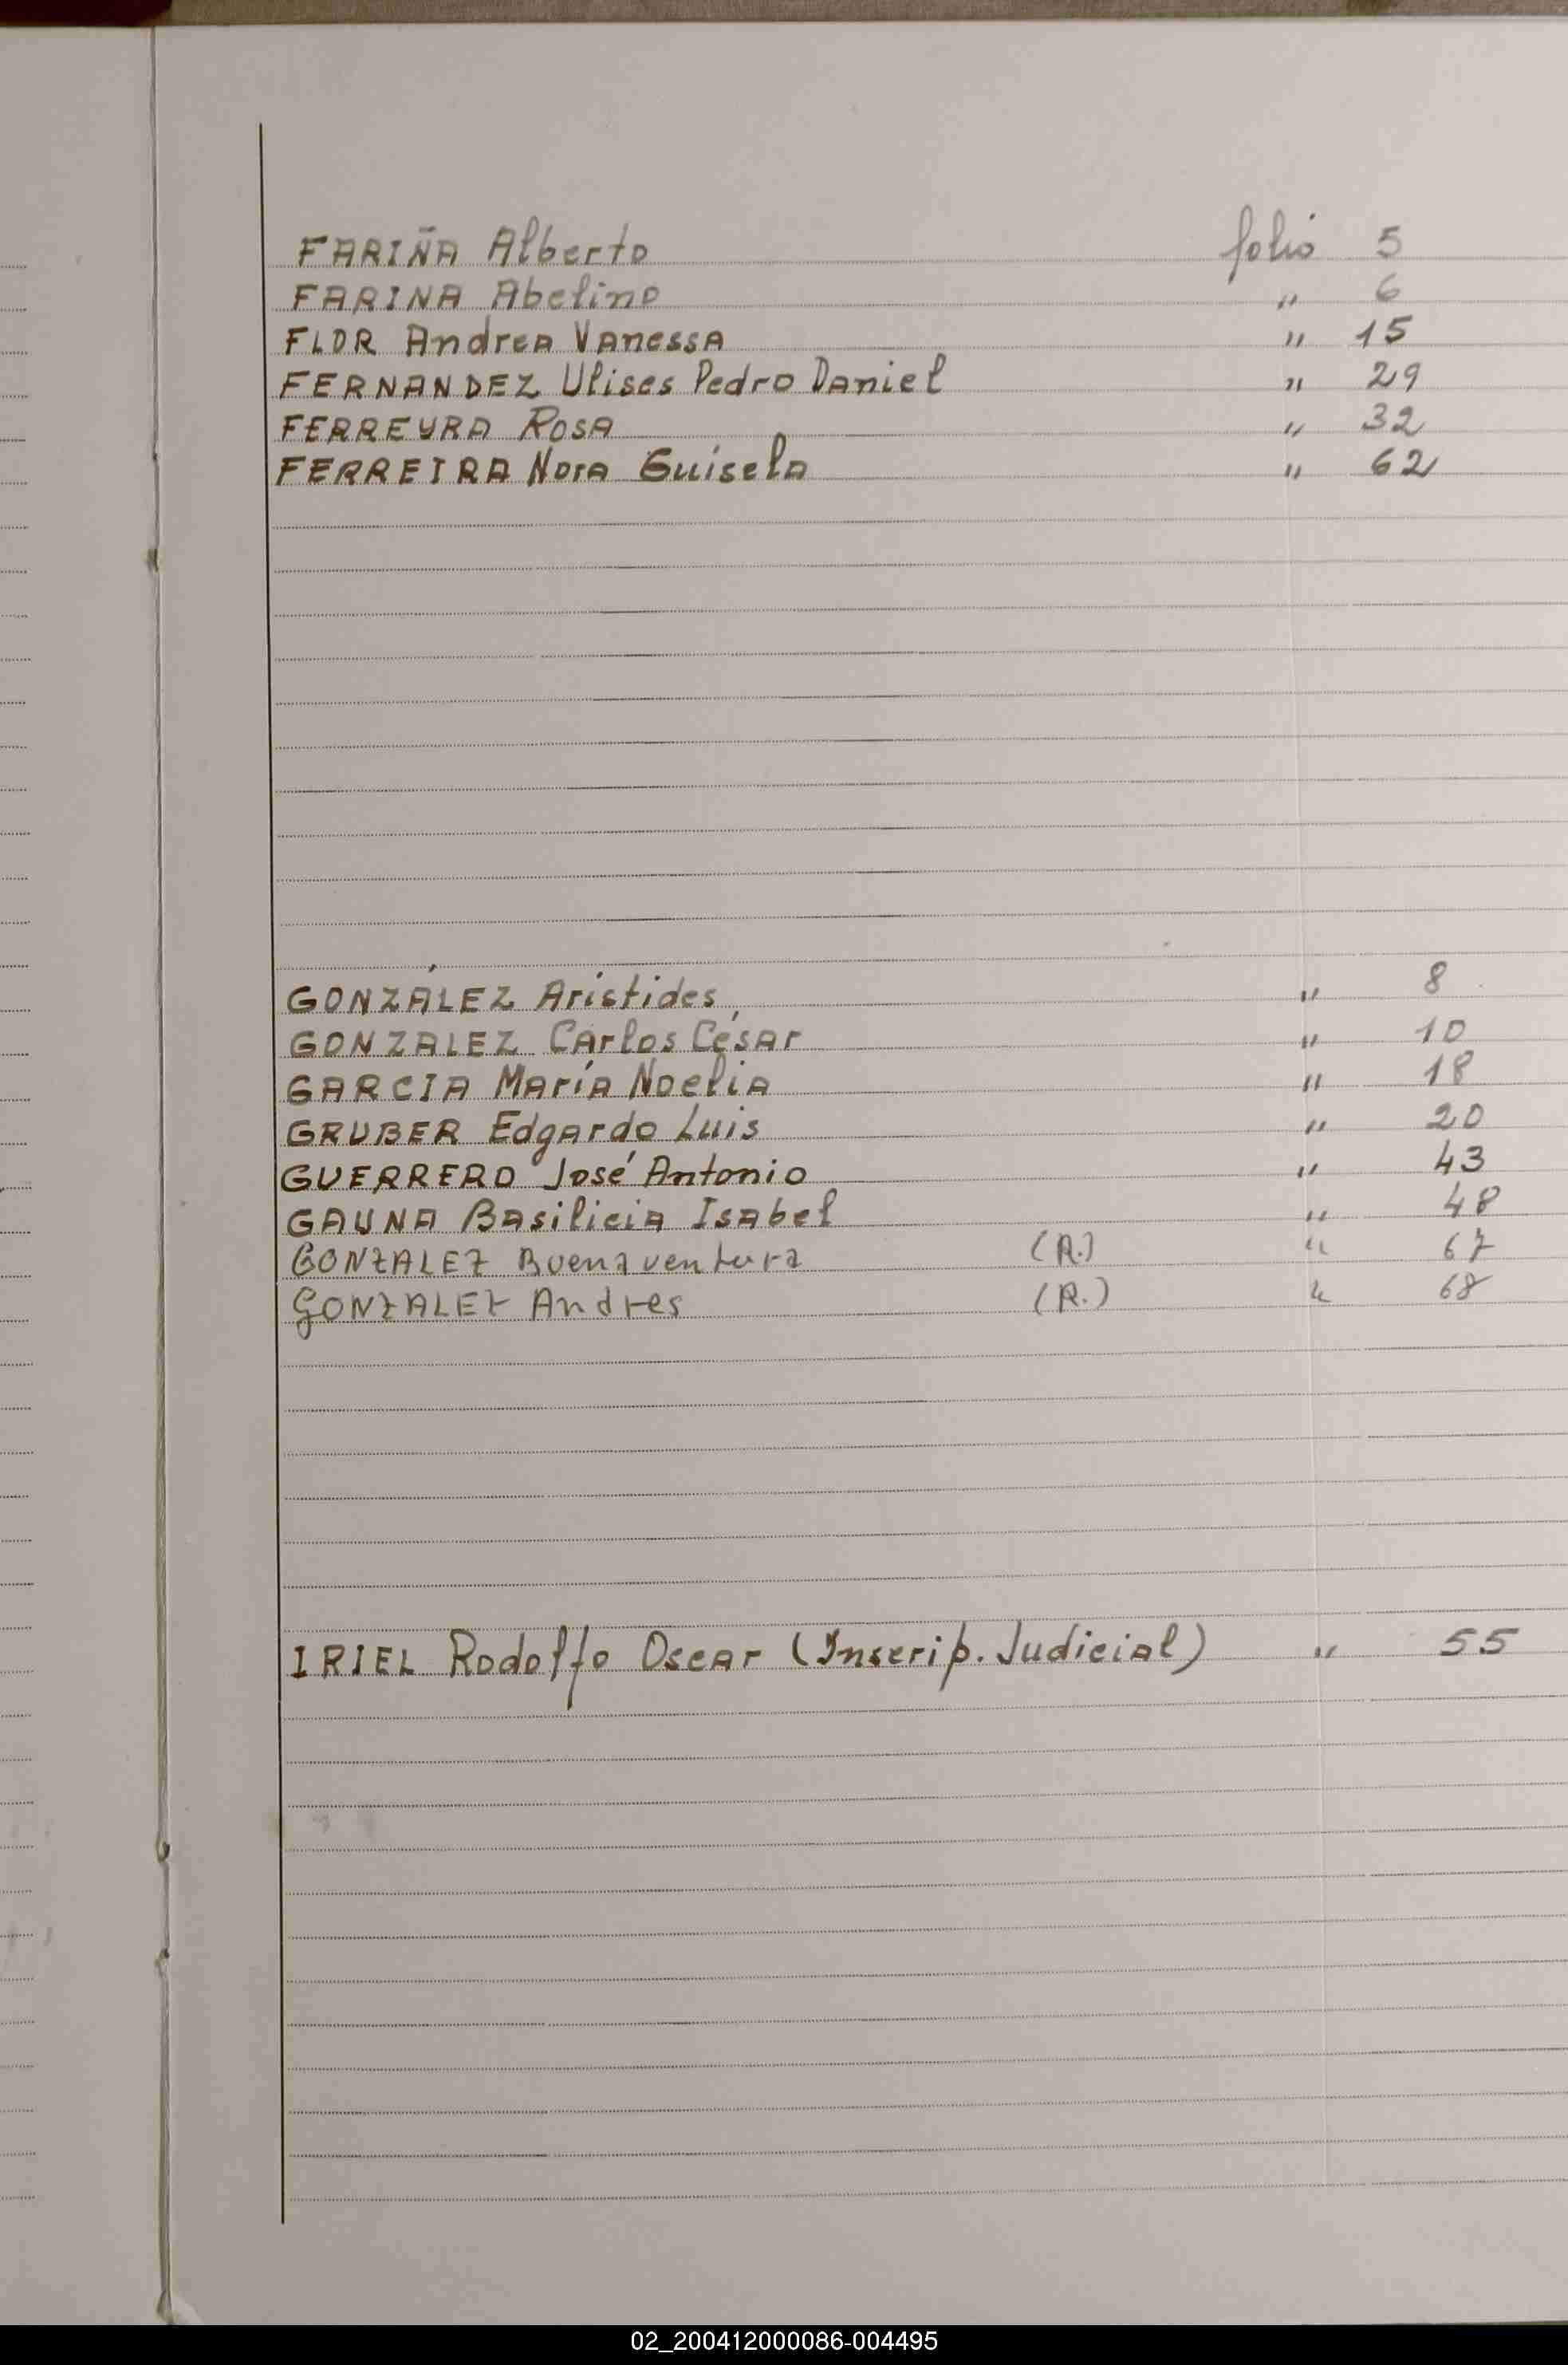 FARIÑA Alberto folio 5
FARINA Abelino " 6
FLOR Andrea Vanessa " 15
FERNANDEZ Ulises Pedro Daniel " 29
FERREYRA Rosa " 32
FERREIRA Nora Guisela " 62
GONZÁLEZ Arístides " 8
GONZALEZ Carlos César " 10
GARCIA María Noelia " 18
GRUBER Edgardo Luis " 20
GUERRERO José Antonio " 43
GAUNA Basilicia Isabel " 48
GONZALEZ Buenaventura (R.) " 67
GONZALEZ Andres (R.) " 68
IRIEL Rodolfo Oscar (Inscrip. Judicial) " 55
02_200412000086-004495